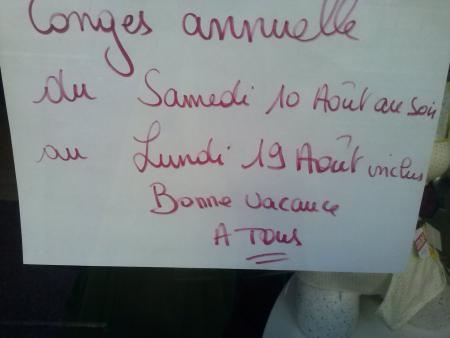 Conges annuelle
du Samedi 10 Août au Soir
au Lundi 19 Août inclus
Bonne vacance
A TOUS